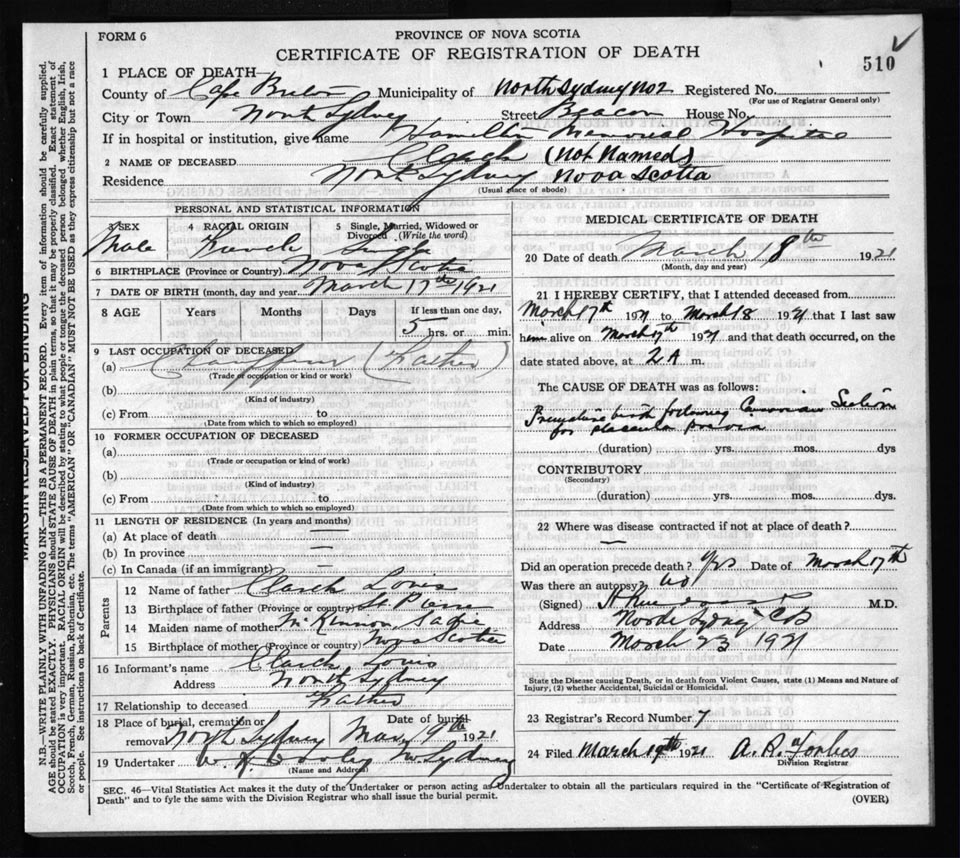 FORM 6
PROVINCE OF NOVA SCOTIA
CERTIFICATE OF REGISTRATION OF DEATH
510
1 PLACE OF DEATH—
County of Cape Breton Municipality of North Sydney No 2 Registered No.
(For use of Registrar General only)
City or Town North Sydney Street Beacon House No.
If in hospital or institution, give name Hamilton Memorial Hospital
2 NAME OF DECEASED (Not Named)
Residence North Sydney Nova Scotia
(Usual place of abode)
PERSONAL AND STATISTICAL INFORMATION
3 SEX 4 RACIAL ORIGIN 5 Single, Married, Widowed or Divorced (Write the word)
Male French Single
6 BIRTHPLACE (Province or Country) Nova Scotia
7 DATE OF BIRTH (month, day and year) March 17th 1921
8 AGE Years Months Days If less than one day,
5 hrs. or min.
9 LAST OCCUPATION OF DECEASED
(a) Chauffeur (Father)
(Trade or occupation or kind or work)
(b)
(Kind of industry)
(c) From to
(Date from which to which so employed)
10 FORMER OCCUPATION OF DECEASED
(a)
(Trade or occupation or kind of work)
(b)
(Kind of industry)
(c) From to
(Date from which to which so employed)
11 LENGTH OF RESIDENCE (In years and months)
(a) At place of death —
(b) In province —
(c) In Canada (if an immigrant) —
Parents
12 Name of father Louis
13 Birthplace of father (Province or country) St Pierre
14 Maiden name of mother McKinnon Sadie
15 Birthplace of mother (Province or country) Nova Scotia
16 Informant's name Louis
Address North Sydney
17 Relationship to deceased Father
18 Place of burial, cremation or removal North Sydney Date of burial Mar 19th 1921
19 Undertaker W. H. N Sydney
(Name and Address)
MEDICAL CERTIFICATE OF DEATH
20 Date of death March 18th 1921
(Month, day and year)
21 I HEREBY CERTIFY, that I attended deceased from
March 17th 1921 to March 18 1921 that I last saw
him alive on March 17th 1921 and that death occurred, on
date stated above, at 2 A m.
The CAUSE OF DEATH was as follows:
Premature birth following Caesarian Section
for placenta previa
(duration) yrs. mos. dys
CONTRIBUTORY
(Secondary)
(duration) yrs. mos. dys.
22 Where was disease contracted if not at place of death?
—
Did an operation precede death? Yes Date of March 17th
Was there an autopsy? No
(Signed) M.D.
Address North Sydney CB
Date March 23 1921
State the Disease causing Death, or in death from Violent Causes, state (1) Means and Nature of Injury; (2) whether Accidental, Suicidal or Homicidal.
23 Registrar's Record Number 7
24 Filed March 19th 1921 A. R. Forbes
Division Registrar
SEC. 46—Vital Statistics Act makes it the duty of the Undertaker or person acting as Undertaker to obtain all the particulars required in the "Certificate of Registration of
Death" and to fyle the same with the Division Registrar who shall issue the burial permit.
(OVER)
MARGIN RESERVED FOR BINDING
N.B.—WRITE PLAINLY WITH UNFADING INK—THIS IS A PERMANENT RECORD. Every item of information should be carefully supplied.
AGE should be stated EXACTLY. PHYSICIANS should STATE CAUSE OF DEATH in plain terms, so that it may be properly classified. Exact statement of
OCCUPATION is very important. RACIAL ORIGIN will be described by stating to what people or tongue the deceased person belonged whether English, Irish,
Scotch, French, German, Russian, Ruthenian, etc. The terms "AMERICAN" OR "CANADIAN" MUST NOT BE USED as they express citizenship but not a race
or people. See instructions on back of Certificate.